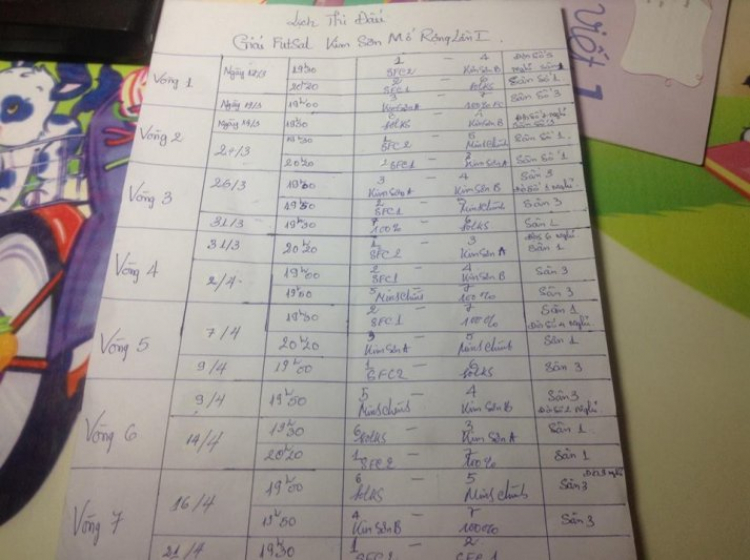 Lịch Thi Đấu
Giải Futsal Kim Sơn Mở Rộng Lần I
Việt 1
Vòng 1 Ngày 19h30 1 SFC2 - 4 Kim Sơn B
20h20 2 SFC1 - 6 folks Sân Số 1
19h00 3 Kim Sơn A - 7 Sân Số 3
Vòng 2 19h30 6 folks - 4 Kim Sơn B
19h30 1 SFC2 - 5 Minh Chính Sân Số 1
20h20 SFC1 - Kim Sơn A Sân Số 1
Vòng 3 26/3 19h30 3 Kim Sơn A - 4 Kim Sơn B Sân 3 Đội Số 1 nghỉ
2 SFC1 - 5 Minh Chính Sân 3
31/3 19h30 7 100% - 6 folks Sân 1
Vòng 4 31/3 20h20 1 SFC2 - 3 Kim Sơn A Đội 6 nghỉ Sân 1
2/4 19h00 2 SFC1 - 4 Kim Sơn B Sân 3
5 Minh Chính - 7 100% Sân 3
Vòng 5 7/4 19h30 2 SFC1 - 7 100% Sân 1 Đội Số 4 nghỉ
20h20 3 Kim Sơn A - 5 Minh Chính Sân 1
9/4 19h00 1 SFC2 - 6 folks Sân 3
Vòng 6 9/4 19h50 5 Minh Chính - 4 Kim Sơn B Sân 3 Đội Số 2 nghỉ
14/4 19h30 6 folks - 3 Kim Sơn A Sân 1
20h20 1 SFC2 - 7 100% Sân 1
Vòng 7 16/4 19h00 6 folks - 5 Minh Chính Sân 3 Đội 3 nghỉ
19h50 4 Kim Sơn B - 7 100% Sân 3
21/4 19h30 1 SFC2 - 2 SFC1 Sân 1